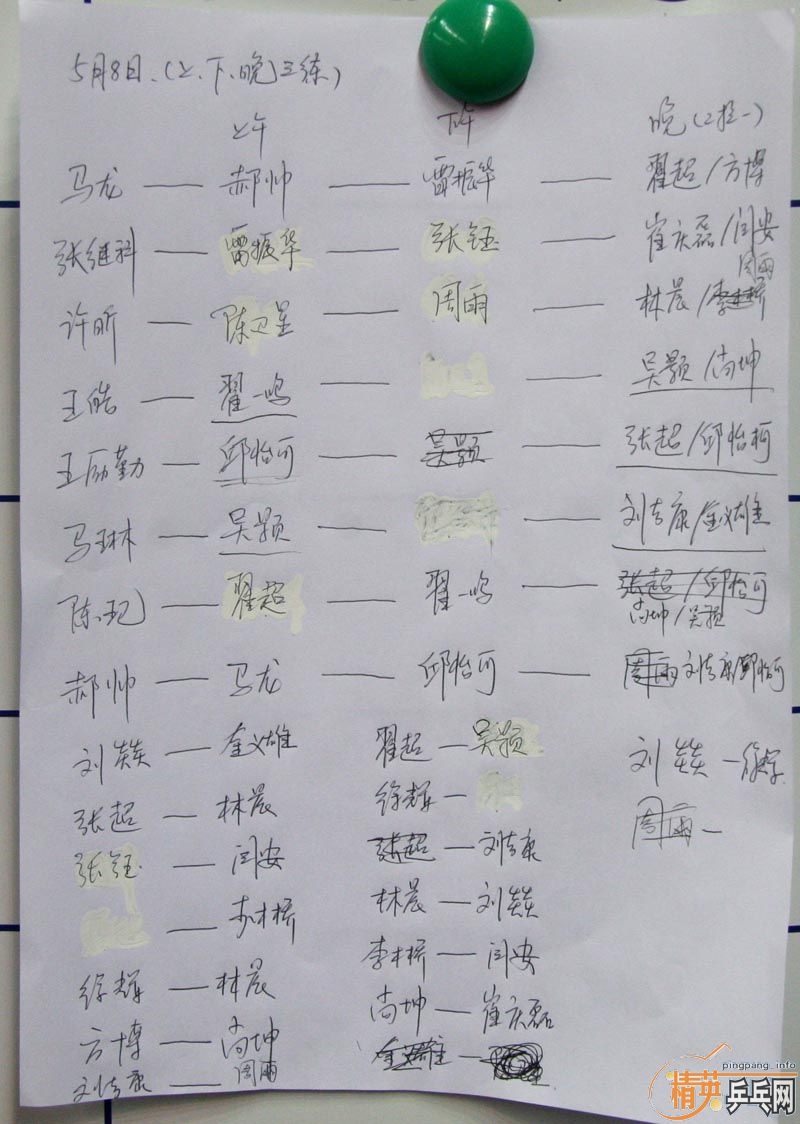 5月8日、(上、下、晚)三练)
上午 下午 晚(2抢一)
马龙 — 郝帅 — 雷振华 — 翟超/方博
张继科 — 雷振华 — 张钰 — 崔庆磊/闫安
周雨
许昕 — 陈卫星 — 周雨 — 林晨/李木桥
王皓 — 翟一鸣 — — 吴颢/尚坤
王励勤 — 邱怡可 — 吴颢 — 张超/邱怡可
马琳 — 吴颢 — — 刘吉康/金义雄
陈玘 — 翟超 — 翟一鸣 — 张超/邱怡可
尚坤/吴颢
郝帅 — 马龙 — 邱怡可 — 周雨 刘吉康/邱怡可
刘燚 — 金义雄 翟超 — 吴颢 刘燚 — 徐辉
张超 — 林晨 徐辉 — 周雨 —
张钰 — 闫安 张超 — 刘吉康
— 李木桥 林晨 — 刘燚
李木桥 — 闫安
徐辉 — 林晨 尚坤 — 崔庆磊
方博 — 尚坤 金义雄 —
刘吉康 — 周雨
pingpang.info
精英乒乓网